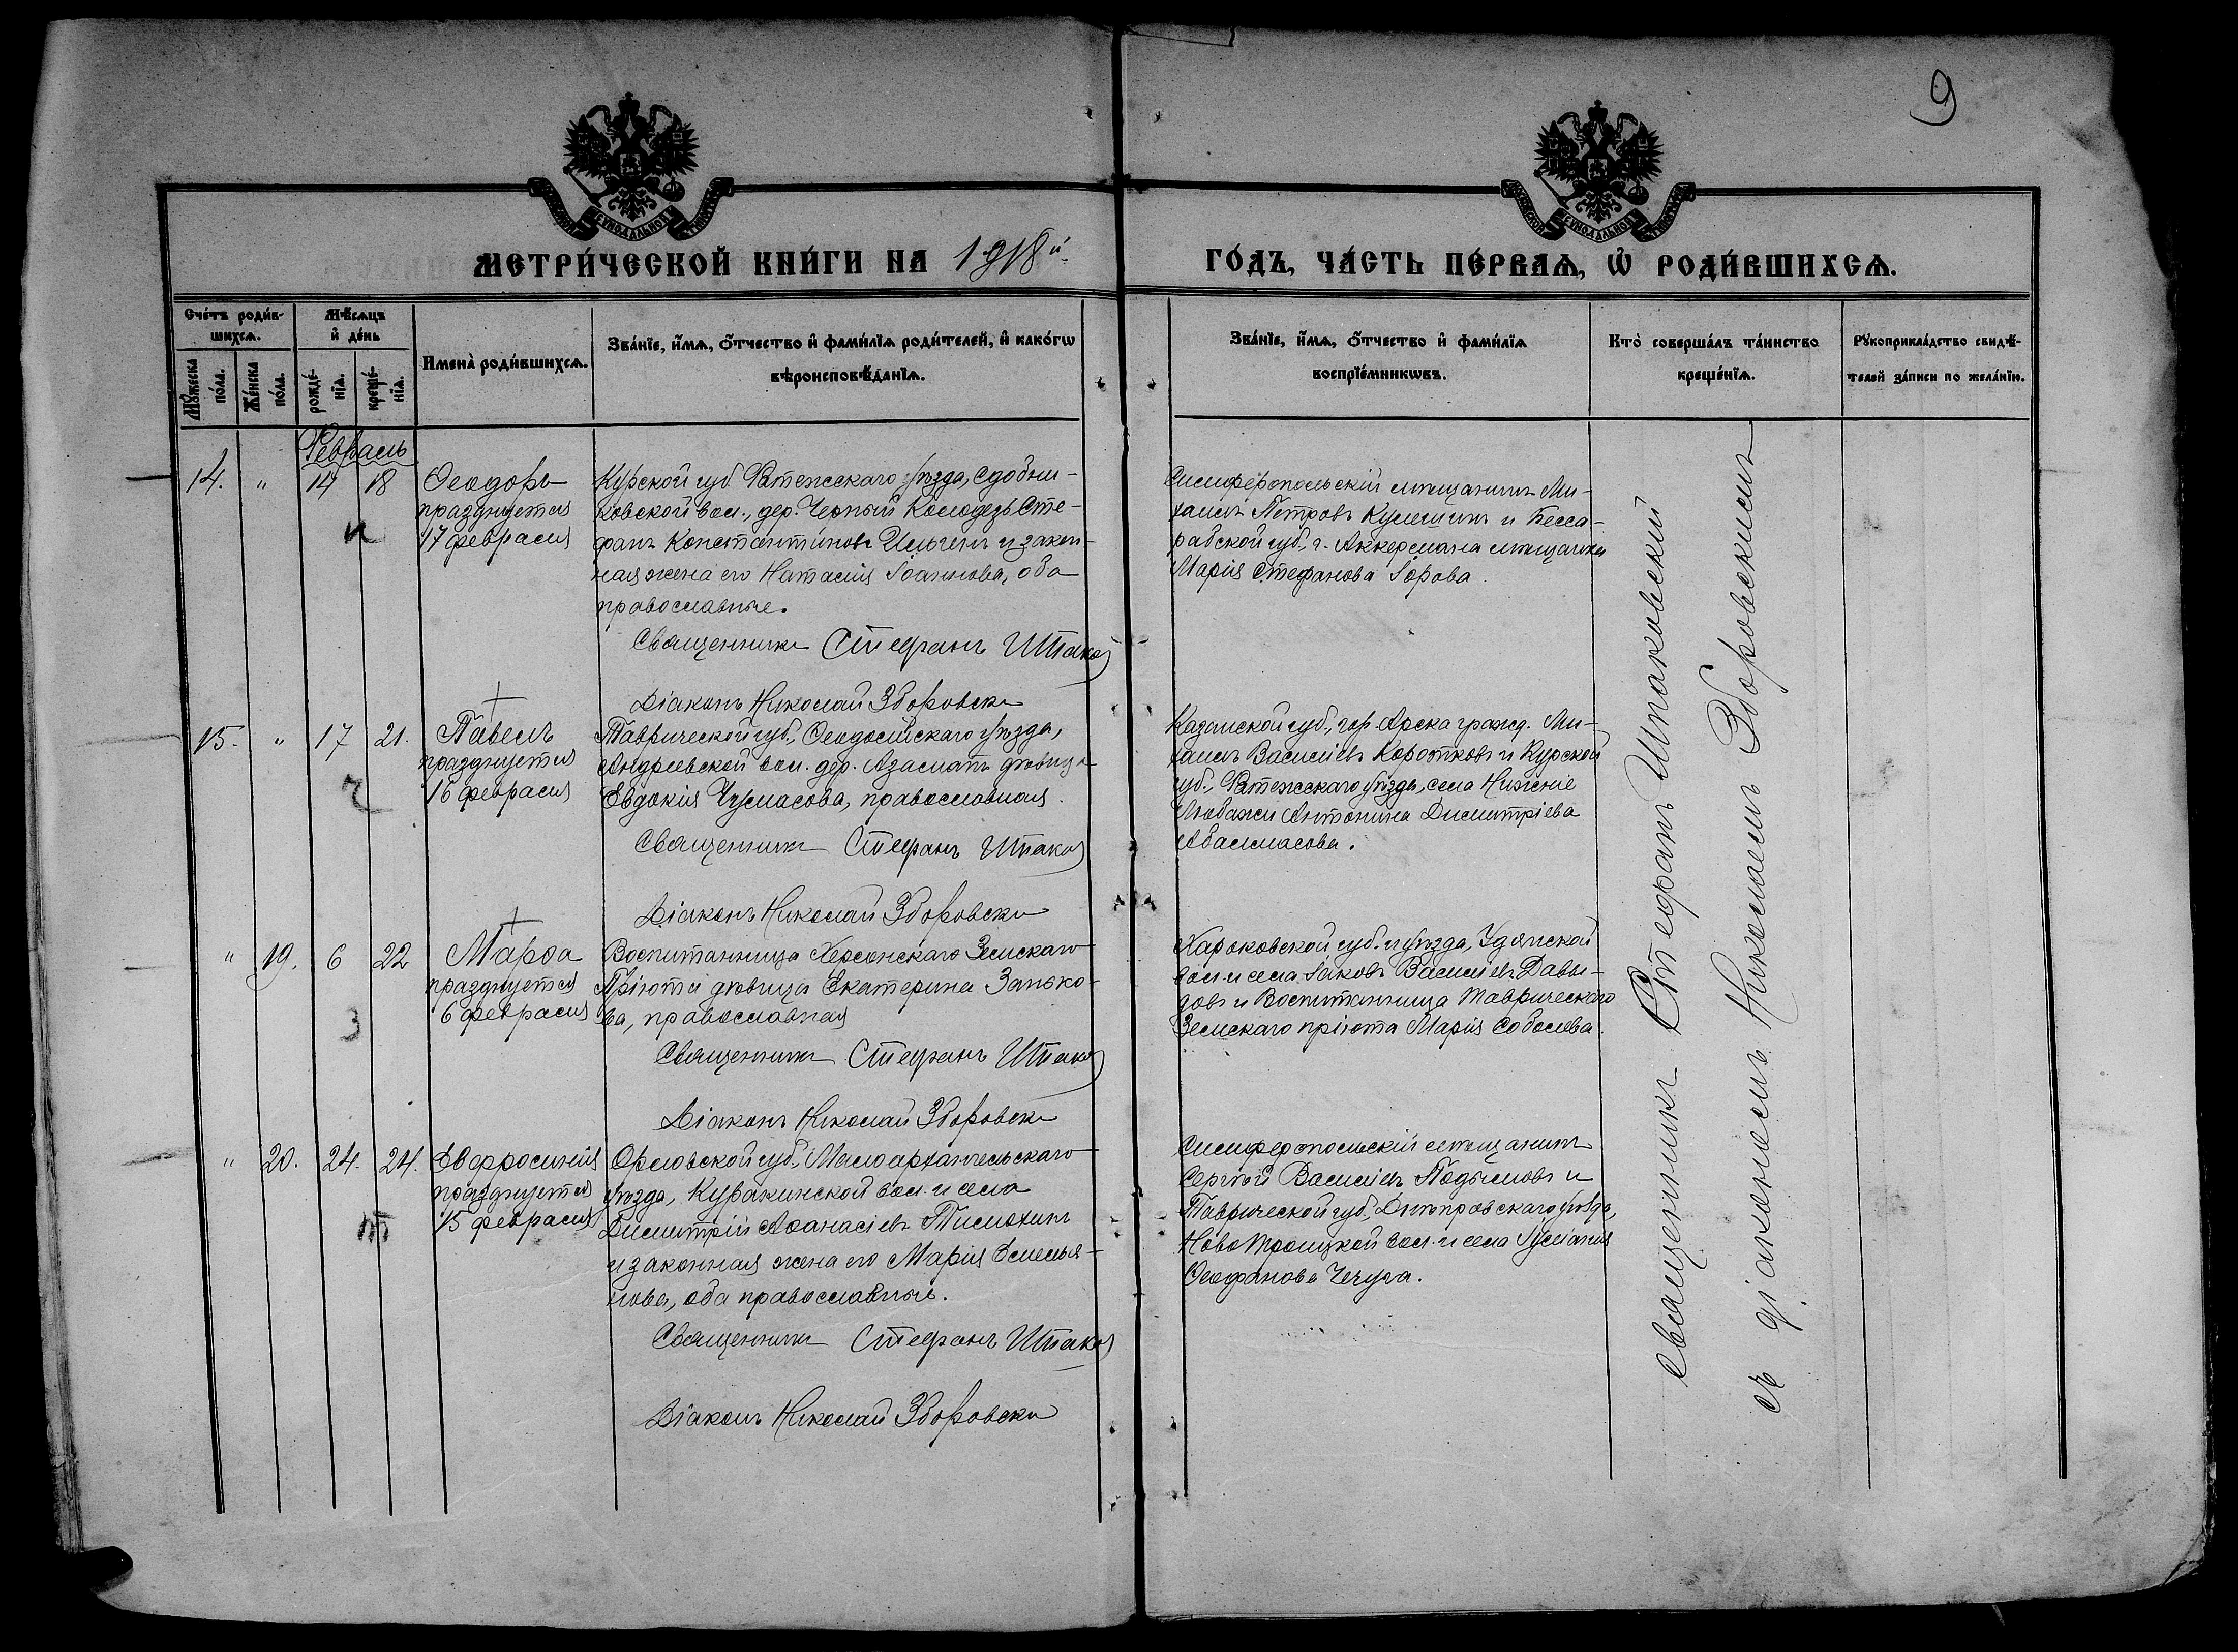 9
МЕТРИ́ЧЕСКОЙ КНИ́ГИ НА 1918й
ГО́ДЪ, ЧА́СТЬ ПЕ́РВАѦ, Ѡ҆ РОДИ́ВШИХСѦ.
Сче́тъ роди́в-
шихсѧ.
Мꙋ́жеска
по́ла.
Же́нска
по́ла.
Мѣ́сѧцъ
и҆ де́нь
рожде́-
нїѧ.
креще́-
нїѧ.
Имена̀ роди́вшихсѧ.
Зва́нїе, и҆́мѧ, ѻ҆́тчество и҆ фами́лїѧ роди́телей, и҆ како́гѡ
вѣроисповѣ́данїѧ.
Зва́нїе, и҆́мѧ, ѻ҆́тчество и҆ фами́лїѧ
воспрїе́мникѡвъ.
Кто̀ соверша́лъ та́инство
креще́нїѧ.
Рꙋкоприкла́дство свидѣ́-
телей за́писи по жела́нїю.
Февраль
14. " 14 18
Ѳеодоръ
празднуется
17 февраля
Курской губ. Фатежскаго уѣзда, Сдобни-
ковской вол., дер. Черный Колодезь Сте-
фанъ Константиновъ Ильинъ и закон-
ная жена его Наталія Іоаннова, оба
православные.
Священникъ Стефанъ Шпаков
Діаконъ Николай Зборовски
Симферопольскій мѣщанинъ Ми-
хаилъ Петровъ Кулешинъ и Бесса-
рабской губ., г. Аккермана мѣщанка
Марія Стефанова Горова.
15. " 17 21.
Павелъ
празднуется
16 февраля
Таврической губ., Ѳеодосійскаго уѣзда,
Андреевской вол. дер. Азаматъ дѣвица
Евдокія Чумасова, православная.
Священникъ Стефанъ Шпаков
Діаконъ Николай Зборовски
Казанской губ., гор. Арска гражд. Ми-
хаилъ Василіевъ Коротковъ и Курской
губ., Фатежскаго уѣзда, села Нижніе
Любажи Антонина Димитріева
Абалмасова.
" 19. 6 22
Марѳа
празднуется
6 февраля
Воспитанница Херсонскаго Земскаго
Пріюта дѣвица Екатерина Занько-
ва, православная
Священникъ Стефанъ Шпаков
Діаконъ Николай Зборовски
Харьковской губ. и уѣзда, Удянской
вол. и села Іаковъ Василіевъ Давы-
довъ и Воспитанница Таврическаго
Земскаго пріюта Марія Соболева.
" 20. 24. 24.
Евфросинія
празднуется
15 февраля
Орловской губ., Малоархангельскаго
уѣзда, Куракинской вол. и села
Димитрій Аѳанасіевъ Тимохинъ
и законная жена его Марія Емелья-
нова, оба православные.
Священникъ Стефанъ Шпаков
Діаконъ Николай Зборовски
Симферопольскій мѣщанинъ
Сергѣй Василіевъ Подымовъ и
Таврической губ., Днѣпровскаго уѣзда,
Ново Троицкой вол. и села Іуліанія
Ѳеофанова Чечуга.
Священникъ Стефанъ Шпаковскій
съ діакономъ Николаемъ Зборовскимъ